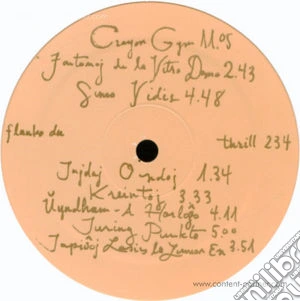 Crayon Gym 11.05
Fantomoj de la Vitro Domo 2.43
Simeo Vidis 4.48
flanko du thrill 234
Jajdaj Ondoj 1.34
Kreintoj 3.33
Ŭyndham-A Horloĝo 4.11
Turing Punkto 5.00
Lasis la Lumon En 3.51
www.content-